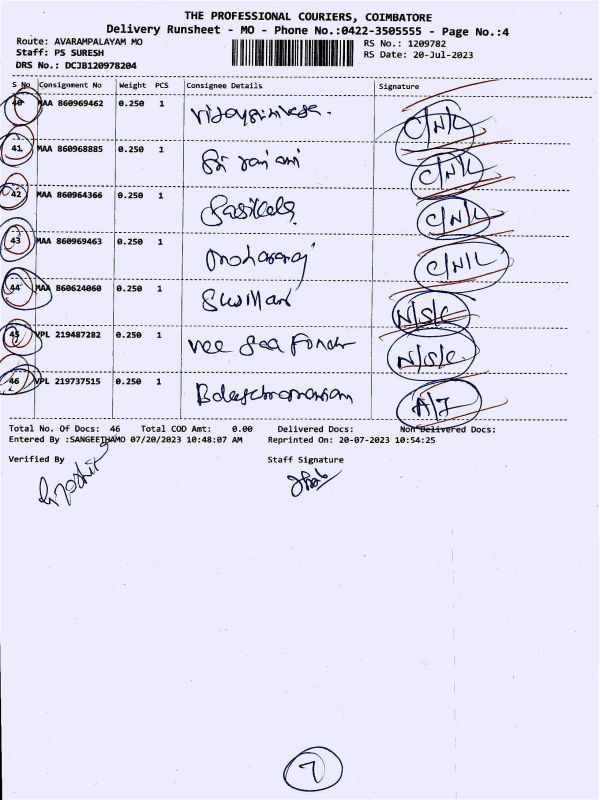 THE PROFESSIONAL COURIERS, COIMBATORE
Delivery Runsheet - MO - Phone No.:0422-3505555 - Page No.:4
Route: AVARAMPALAYAM MO RS No.: 1209782
Staff: PS SURESH RS Date: 20-Jul-2023
DRS No.: DCJB120978204
S No Consignment No Weight PCS Consignee Details Signature
40 MAA 860969462 0.250 1 C/N/L
41 MAA 860968885 0.250 1 Sri rani C/N/L
42 MAA 860964366 0.250 1 Sasikala C/N/L
43 MAA 860969463 0.250 1 C/N/L
44 MAA 860624060 0.250 1 N/S/C
45 VPL 219487282 0.250 1 N/S/C
46 VPL 219737515 0.250 1
Total No. Of Docs: 46 Total COD Amt: 0.00 Delivered Docs: Non Delivered Docs:
Entered By :SANGEETHAMO 07/20/2023 10:48:07 AM Reprinted On: 20-07-2023 10:54:25
Verified By Staff Signature
7